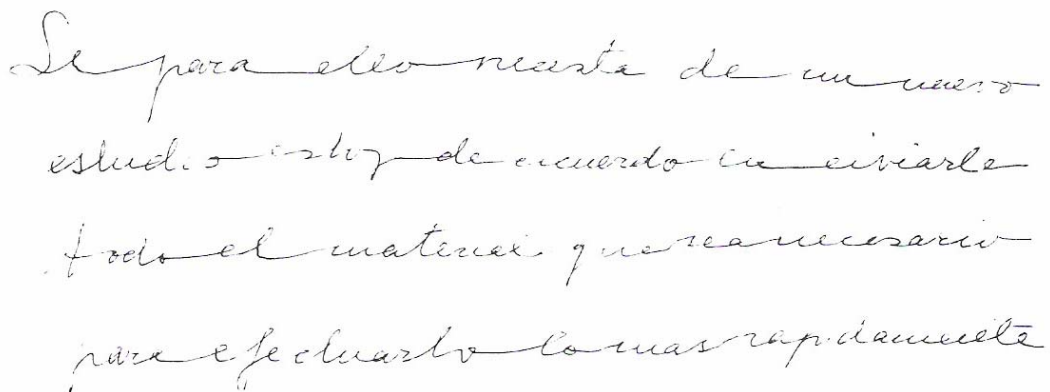 Si para ello necesita de un nuevo
estudio estoy de acuerdo en enviarle
todo el material que sea necesario
para efectuarlo lo mas rapidamente